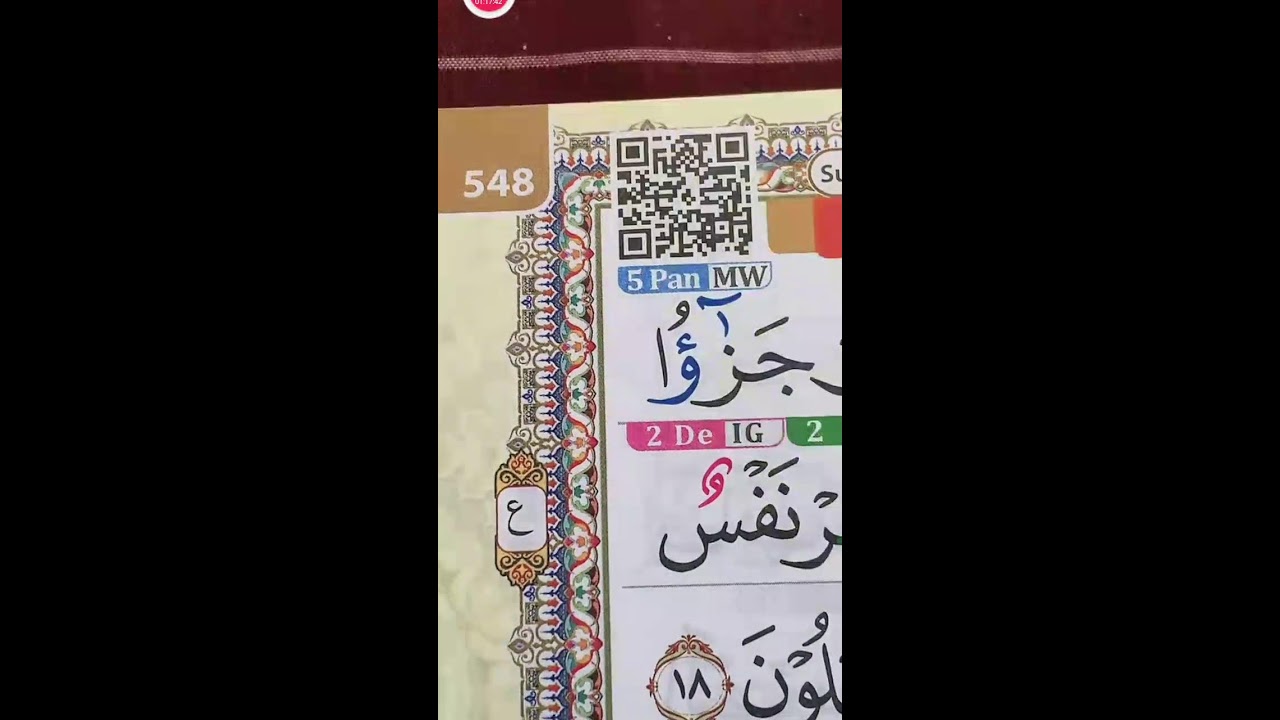 01:17:42
548
Su
5 Pan MW
جَزٰٓؤُا
2 De IG 2
نَفْسٌ
ع
لُوْنَ ١٨